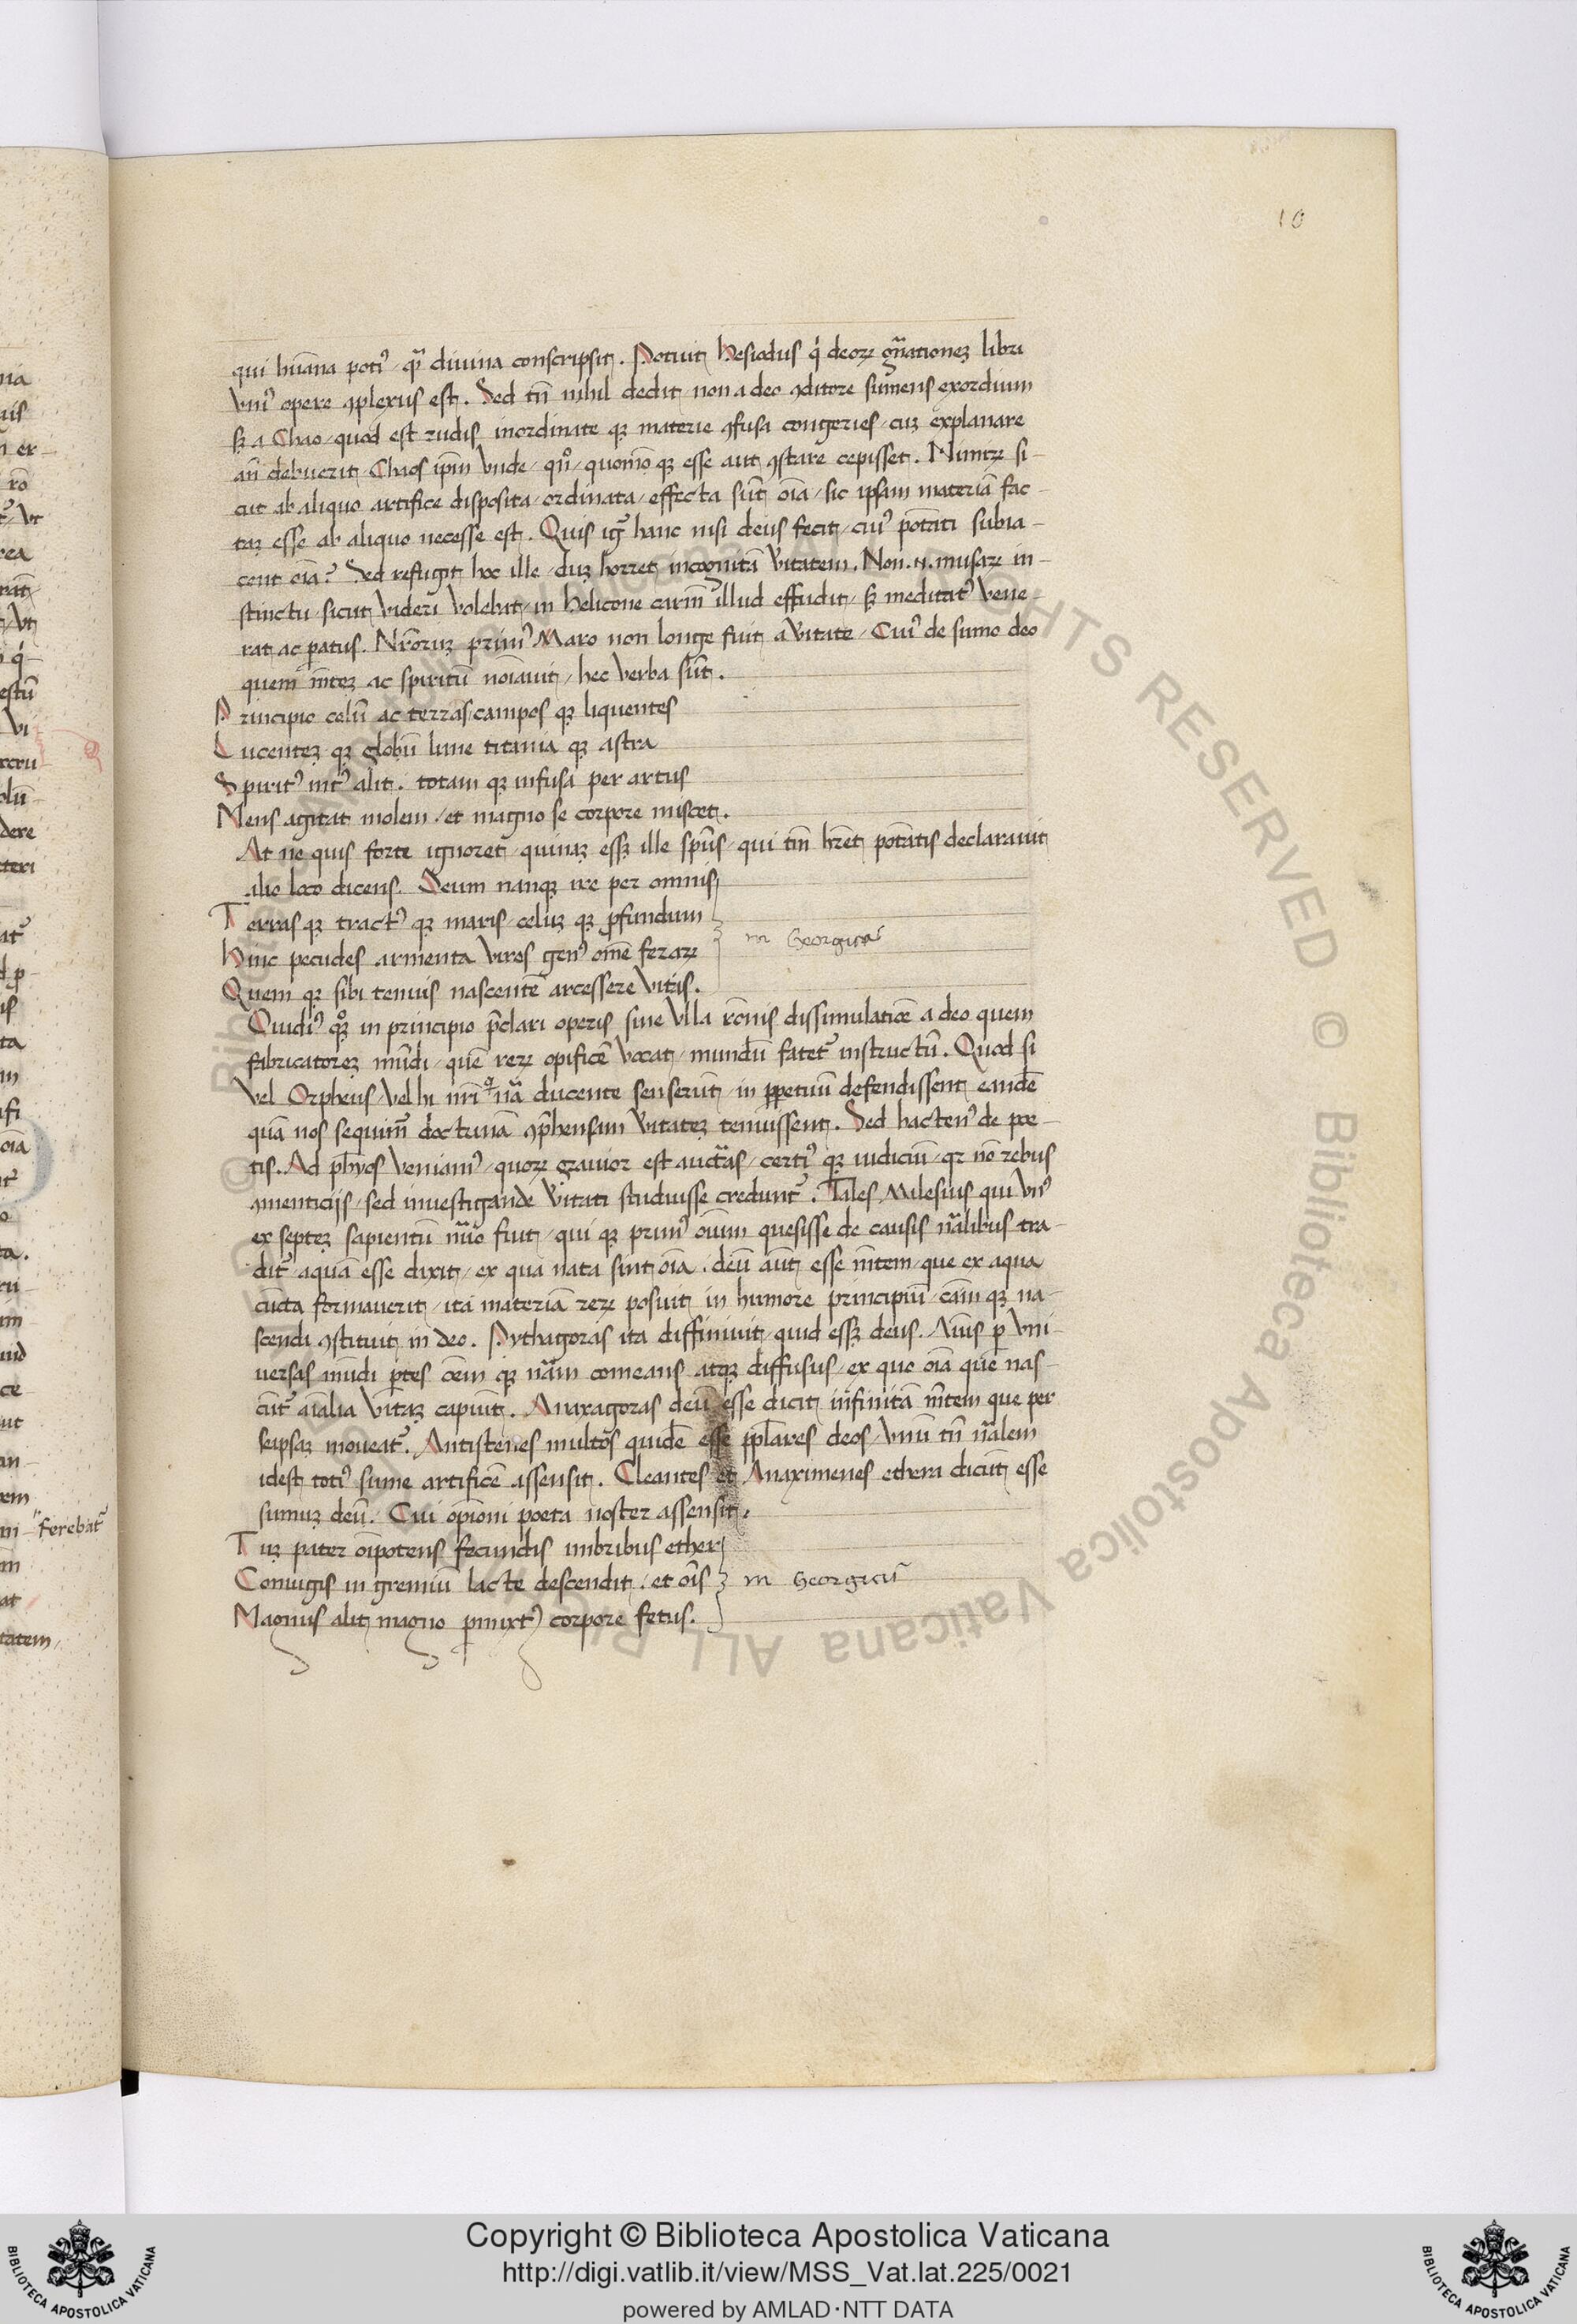 10
qui hūana poti᾽ qᷓ diuina conscripsit. Potuit Hesiodus q̇ deoꝝ gn̄ationeꝫ libri
vni᾽ opere ꝯplexus est. Sed tn̄ nihil dedit non a deo ꝯditore sumens exordium
sꝫ a Chao quod est rudis inordinate qꝫ materie ꝯfusa congeries cuꝫ explanare
an̄ debuerit Chaos ip̄m vnde qn̊ quomō qꝫ esse aut ꝯstare cepisset. Nimiꝝ si-
cut ab aliquo artifice disposita ordinata effecta sūt oīa sic ipsam materiā fac-
taꝫ esse ab aliquo necesse est. Quis ig᷑ hanc nisi deus fecit cui᾽ potāti subia-
cent oīa? Sed refugit hoc ille duꝫ horret incognitā v̄itatem. Non .n. musaꝝ in-
stinctu sicut videri volebat in Helicone carm̄ illud effudit sꝫ meditat᾽ vene-
rat ac ꝑatus. Nr̄oruꝫ prim᾽ Maro non longe fuit a v̄itate Cui᾽ de sūmo deo
quem m̄teꝫ ac spiritū noīauit hec verba sūt.
Principio celū ac terras campos qꝫ liquentes
Lucenteꝫ qꝫ globū lune titania qꝫ astra
Spirit᾽ int᾽ alit. totam qꝫ infusa per artus
Mens agitat molem et magno se corpore miscet.
At ne quis forte ignoret quinaꝫ essꝫ ille sp̄us qui tm̄ hr̄et potātis declarauit
alio loco dicens. Deum nanqꝫ ire per omnis
Terras qꝫ tract᾽ qꝫ maris celuꝫ qꝫ ꝓfundum
in Georgicas
Hinc pecudes armenta viros gen᾽ omē feraꝝ
Quem qꝫ sibi tenuis nascentē arcessere vitas.
Ouidi᾽ qꝫ in principio p̄clari operis sine vlla nōmīs dissimulatiōe a deo quem
fabricatoreꝫ mūdi quē reꝝ opificē vocat mundū fatet᷑ instructū. Quod si
vel Orpheus vel hi nr̄i qͣ nā ducente senserūt in ꝑpetuū defendissent eandē
quā nos sequim᷑ doctrinā ꝯp̄hensam v̄itateꝫ tenuissent. Sed hacten᾽ de poe-
tis. Ad ph̄yos veniam᾽ quoꝝ grauior est auctᷓas certi᾽ qꝫ iudiciū qꝛ nō rebus
ꝯmenticijs sed inuestigande v̄itati studuisse credunt᷑. Tales Milesius qui vn᾽
ex septeꝫ sapientū nūo fuit qui qꝫ prim᾽ oīum quesisse de causis nᷓalibus tra-
dit᷑ aquā esse dixit ex qua nata sint oīa. deū aūt esse m̄tem que ex aqua
cūcta formauerit ita materiā reꝝ posuit in humore principiū cām qꝫ na-
scendi ꝯstituit in deo. Pythagoras ita diffiniuit quid essꝫ deus. Aīus ꝑ vni-
uersas mūdi ꝑtes oēm qꝫ nᷓam comeans atqꝫ diffusus ex quo oīa que nas-
cūt᷑ aīalia vitaꝫ capiūt. Anaxagoras deū esse dicit infinitā m̄tem que per
seipsaꝫ moueat᷑. Antistenes multos quidē esse pp̄lares deos vnū tn̄ nᷓalem
idest toti᾽ sūme artificē assensit. Cleantes et Anaximenes ethera dicūt esse
sumuꝫ deū. Cui opīoni poeta noster assensit.
Tuꝫ pater oīpotens fecundis imbribus ether
Coniugis in gremiū lacte descendit et oīs
in Georgicis
Magnus alit magno ꝑmixt᾽ corpore fetus.
ferebat᷑
Copyright © Biblioteca Apostolica Vaticana
http://digi.vatlib.it/view/MSS_Vat.lat.225/0021
powered by AMLAD·NTT DATA